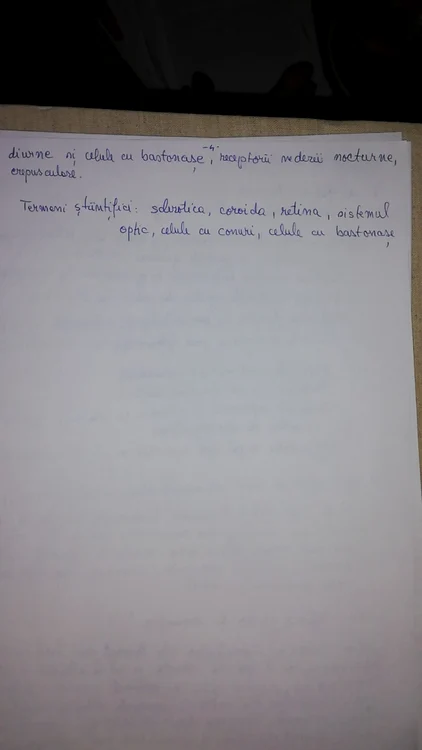 -4-
diurne și celule cu bastonașe, receptorii vederii nocturne,
crepusculare.
Termeni științifici: sclerotica, coroida, retina, sistemul
optic, celule cu conuri, celule cu bastonașe